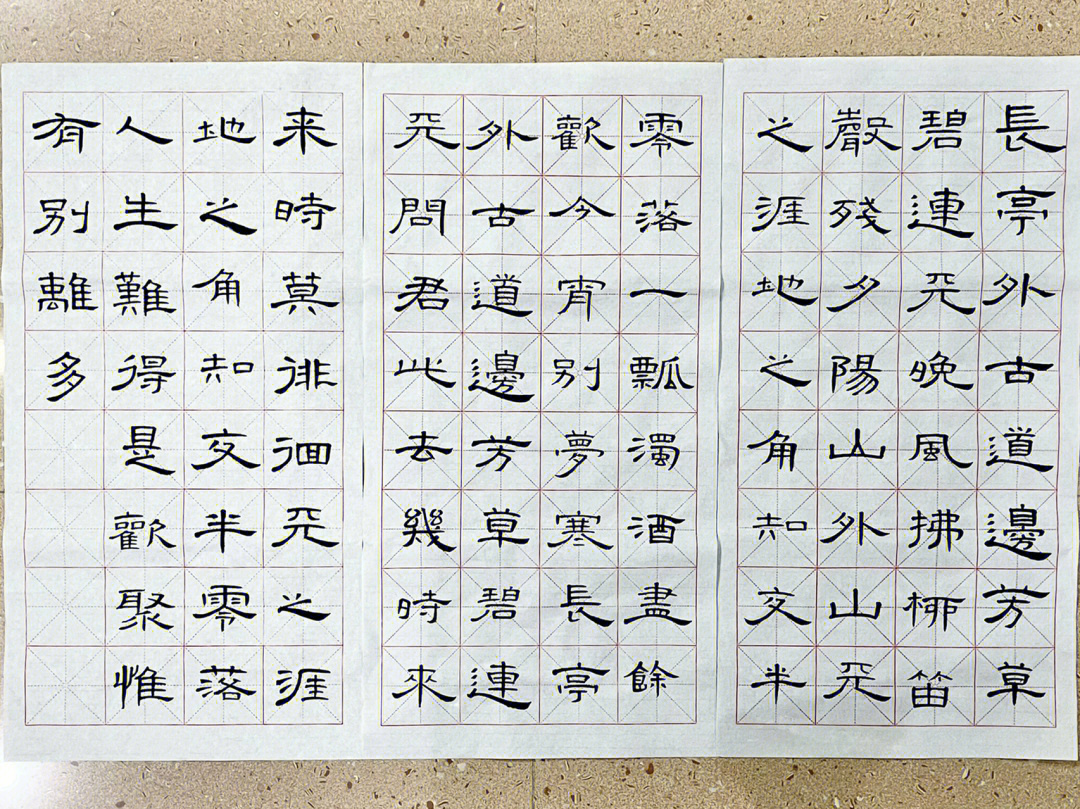 長亭外古道邊芳草
碧連天晚風拂柳笛
聲殘夕陽山外山天
之涯地之角知交半
零落一瓢濁酒盡餘
歡今宵别夢寒長亭
外古道邊芳草碧連
天問君此去幾時來
来時莫徘徊天之涯
地之角知交半零落
人生難得是歡聚惟
有别離多